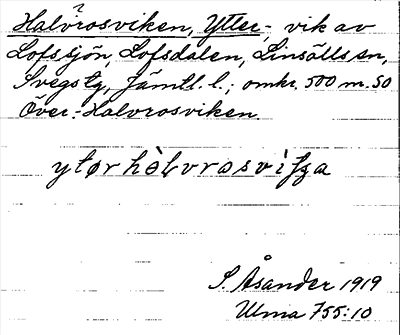 ?
Halvrosviken, Ytter-, vik av
Lofssjön, Lofsdalen, Linsälls sn,
Svegs tg, Jämtl. l.; omkr. 500 m. SO
Över-Halvrosviken.
S. Åsander 1919
Ulma 755:10